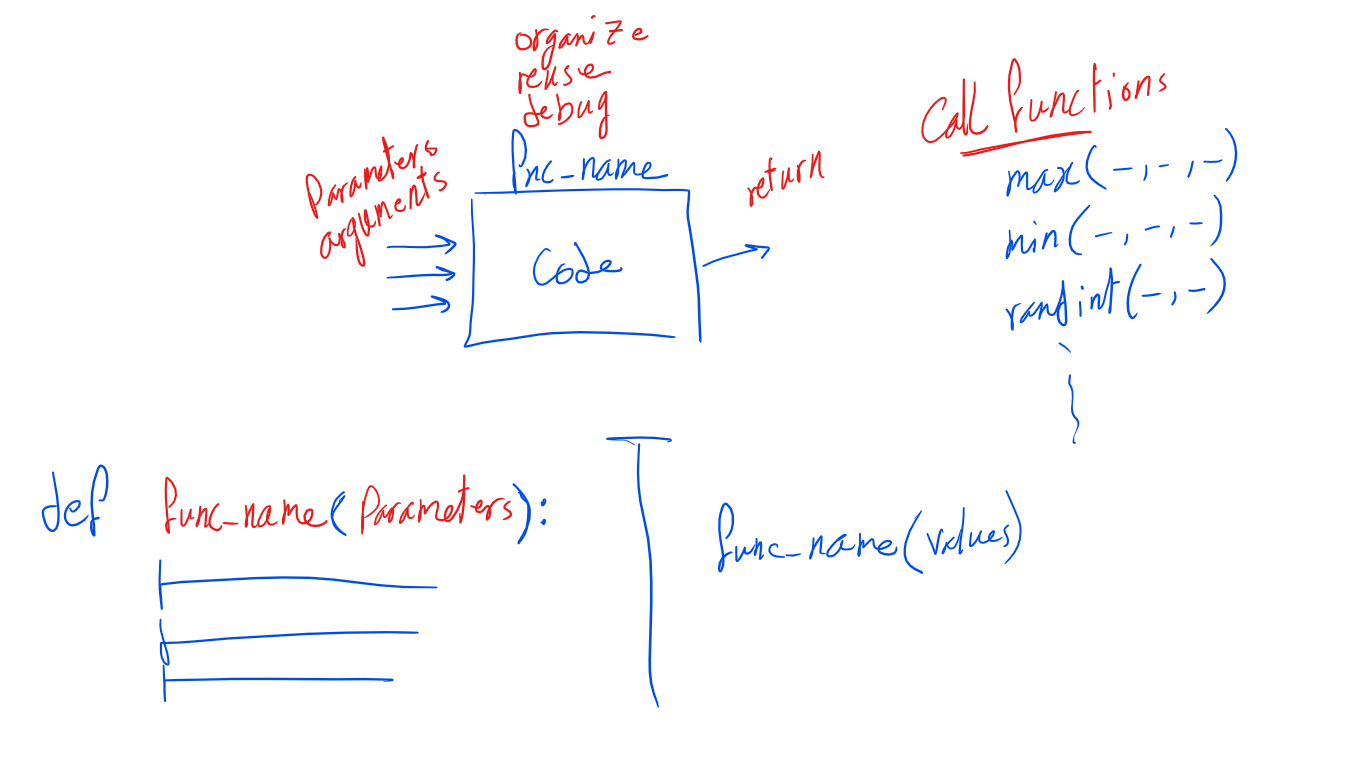 organize
reuse
debug
Parameters
arguments
fnc_name
Code
return
Call functions
max(-,-,-)
min(-,-,-)
randint(-,-)
def func_name(Parameters):
func_name(values)